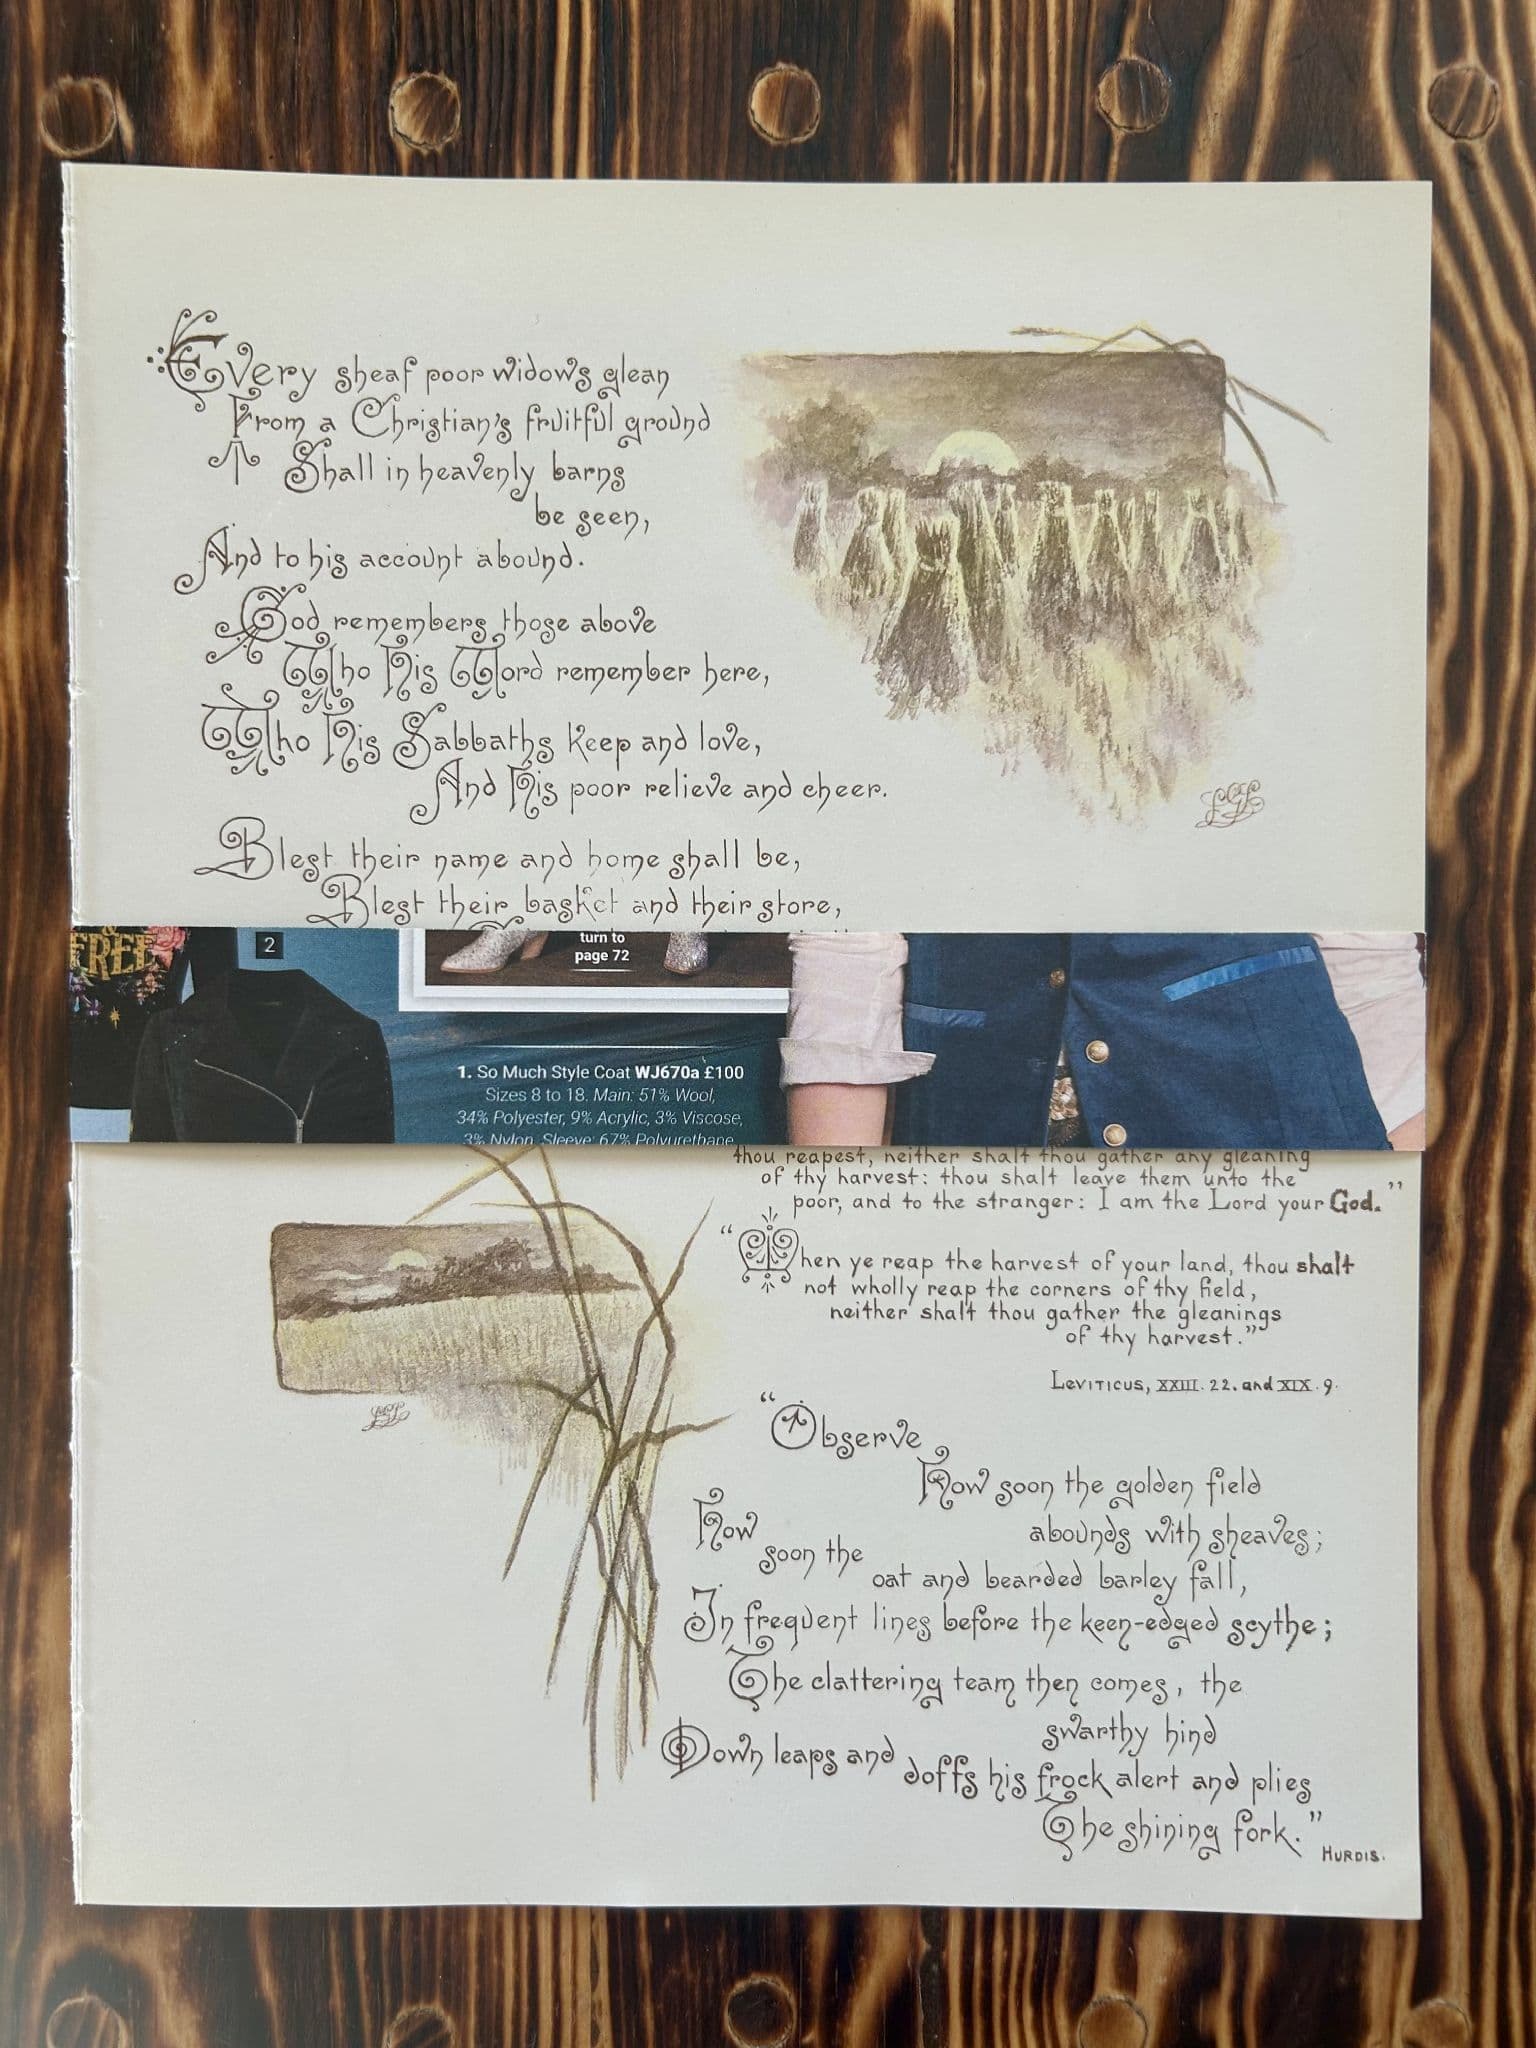 Every sheaf poor widows glean
From a Christian's fruitful ground
Shall in heavenly barns
be seen,
And to his account abound.
God remembers those above
Who His Word remember here,
Who His Sabbaths keep and love,
And His poor relieve and cheer.
Blest their name and home shall be,
Blest their basket and their store,
FREE
2
turn to
page 72
1. So Much Style Coat WJ670a £100
Sizes 8 to 18. Main: 51% Wool,
34% Polyester, 9% Acrylic, 3% Viscose,
3% Nylon. Sleeve: 67% Polyurethane,
thou reapest, neither shalt thou gather any gleaning
of thy harvest: thou shalt leave them unto the
poor, and to the stranger: I am the Lord your God."
"When ye reap the harvest of your land, thou shalt
not wholly reap the corners of thy field,
neither shalt thou gather the gleanings
of thy harvest."
LEVITICUS, XXIII. 22. and XIX. 9.
"Observe
How soon the golden field
abounds with sheaves;
How soon the oat and bearded barley fall,
In frequent lines before the keen-edged scythe;
The clattering team then comes, the
swarthy hind
Down leaps and doffs his frock alert and plies
The shining fork."
HURDIS.